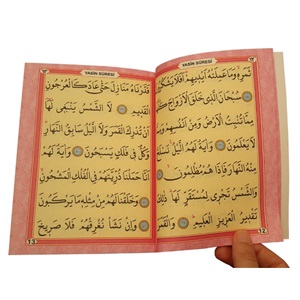 YASİN SÛRESİ
ثَمَرِهِ وَمَا عَمِلَتْهُ اَيْدِيهِمْ اَفَلَا يَشْكُرُونَ
سُبْحَانَ الَّذِي خَلَقَ الْاَزْوَاجَ كُلَّهَا
مِمَّا تُنْبِتُ الْاَرْضُ وَمِنْ اَنْفُسِهِمْ وَمِمَّا
لَا يَعْلَمُونَ وَاٰيَةٌ لَهُمُ الَّيْلُ نَسْلَخُ
مِنْهُ النَّهَارَ فَاِذَا هُمْ مُظْلِمُونَ
وَالشَّمْسُ تَجْرِي لِمُسْتَقَرٍّ لَهَا ذٰلِكَ
تَقْدِيرُ الْعَزِيزِ الْعَلِيمِ وَالْقَمَرَ
12
YASİN SÛRESİ
قَدَّرْنَاهُ مَنَازِلَ حَتّٰى عَادَ كَالْعُرْجُونِ
الْقَدِيمِ لَا الشَّمْسُ يَنْبَغِي لَهَا
اَنْ تُدْرِكَ الْقَمَرَ وَلَا الَّيْلُ سَابِقُ النَّهَارِ
وَكُلٌّ فِي فَلَكٍ يَسْبَحُونَ وَاٰيَةٌ لَهُمْ
اَنَّا حَمَلْنَا ذُرِّيَّتَهُمْ فِي الْفُلْكِ الْمَشْحُونِ
وَخَلَقْنَا لَهُمْ مِنْ مِثْلِهِ مَا يَرْكَبُونَ
وَاِنْ نَشَأْ نُغْرِقْهُمْ فَلَا صَرِيخَ
13